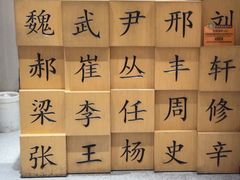 魏 武 尹 邢 刘
郝 崔 丛 丰 轩
梁 李 任 周 修
张 王 杨 史 辛